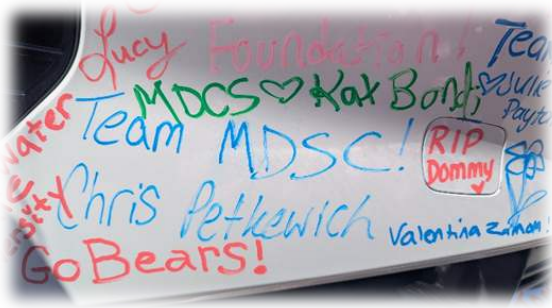 Lucy Foundation!
Team
MDCS ♡ Kat Bondi
♡ Julie
Payton
Team MDSC!
RIP
Dommy
Chris Petkewich
Valentina
Go Bears!